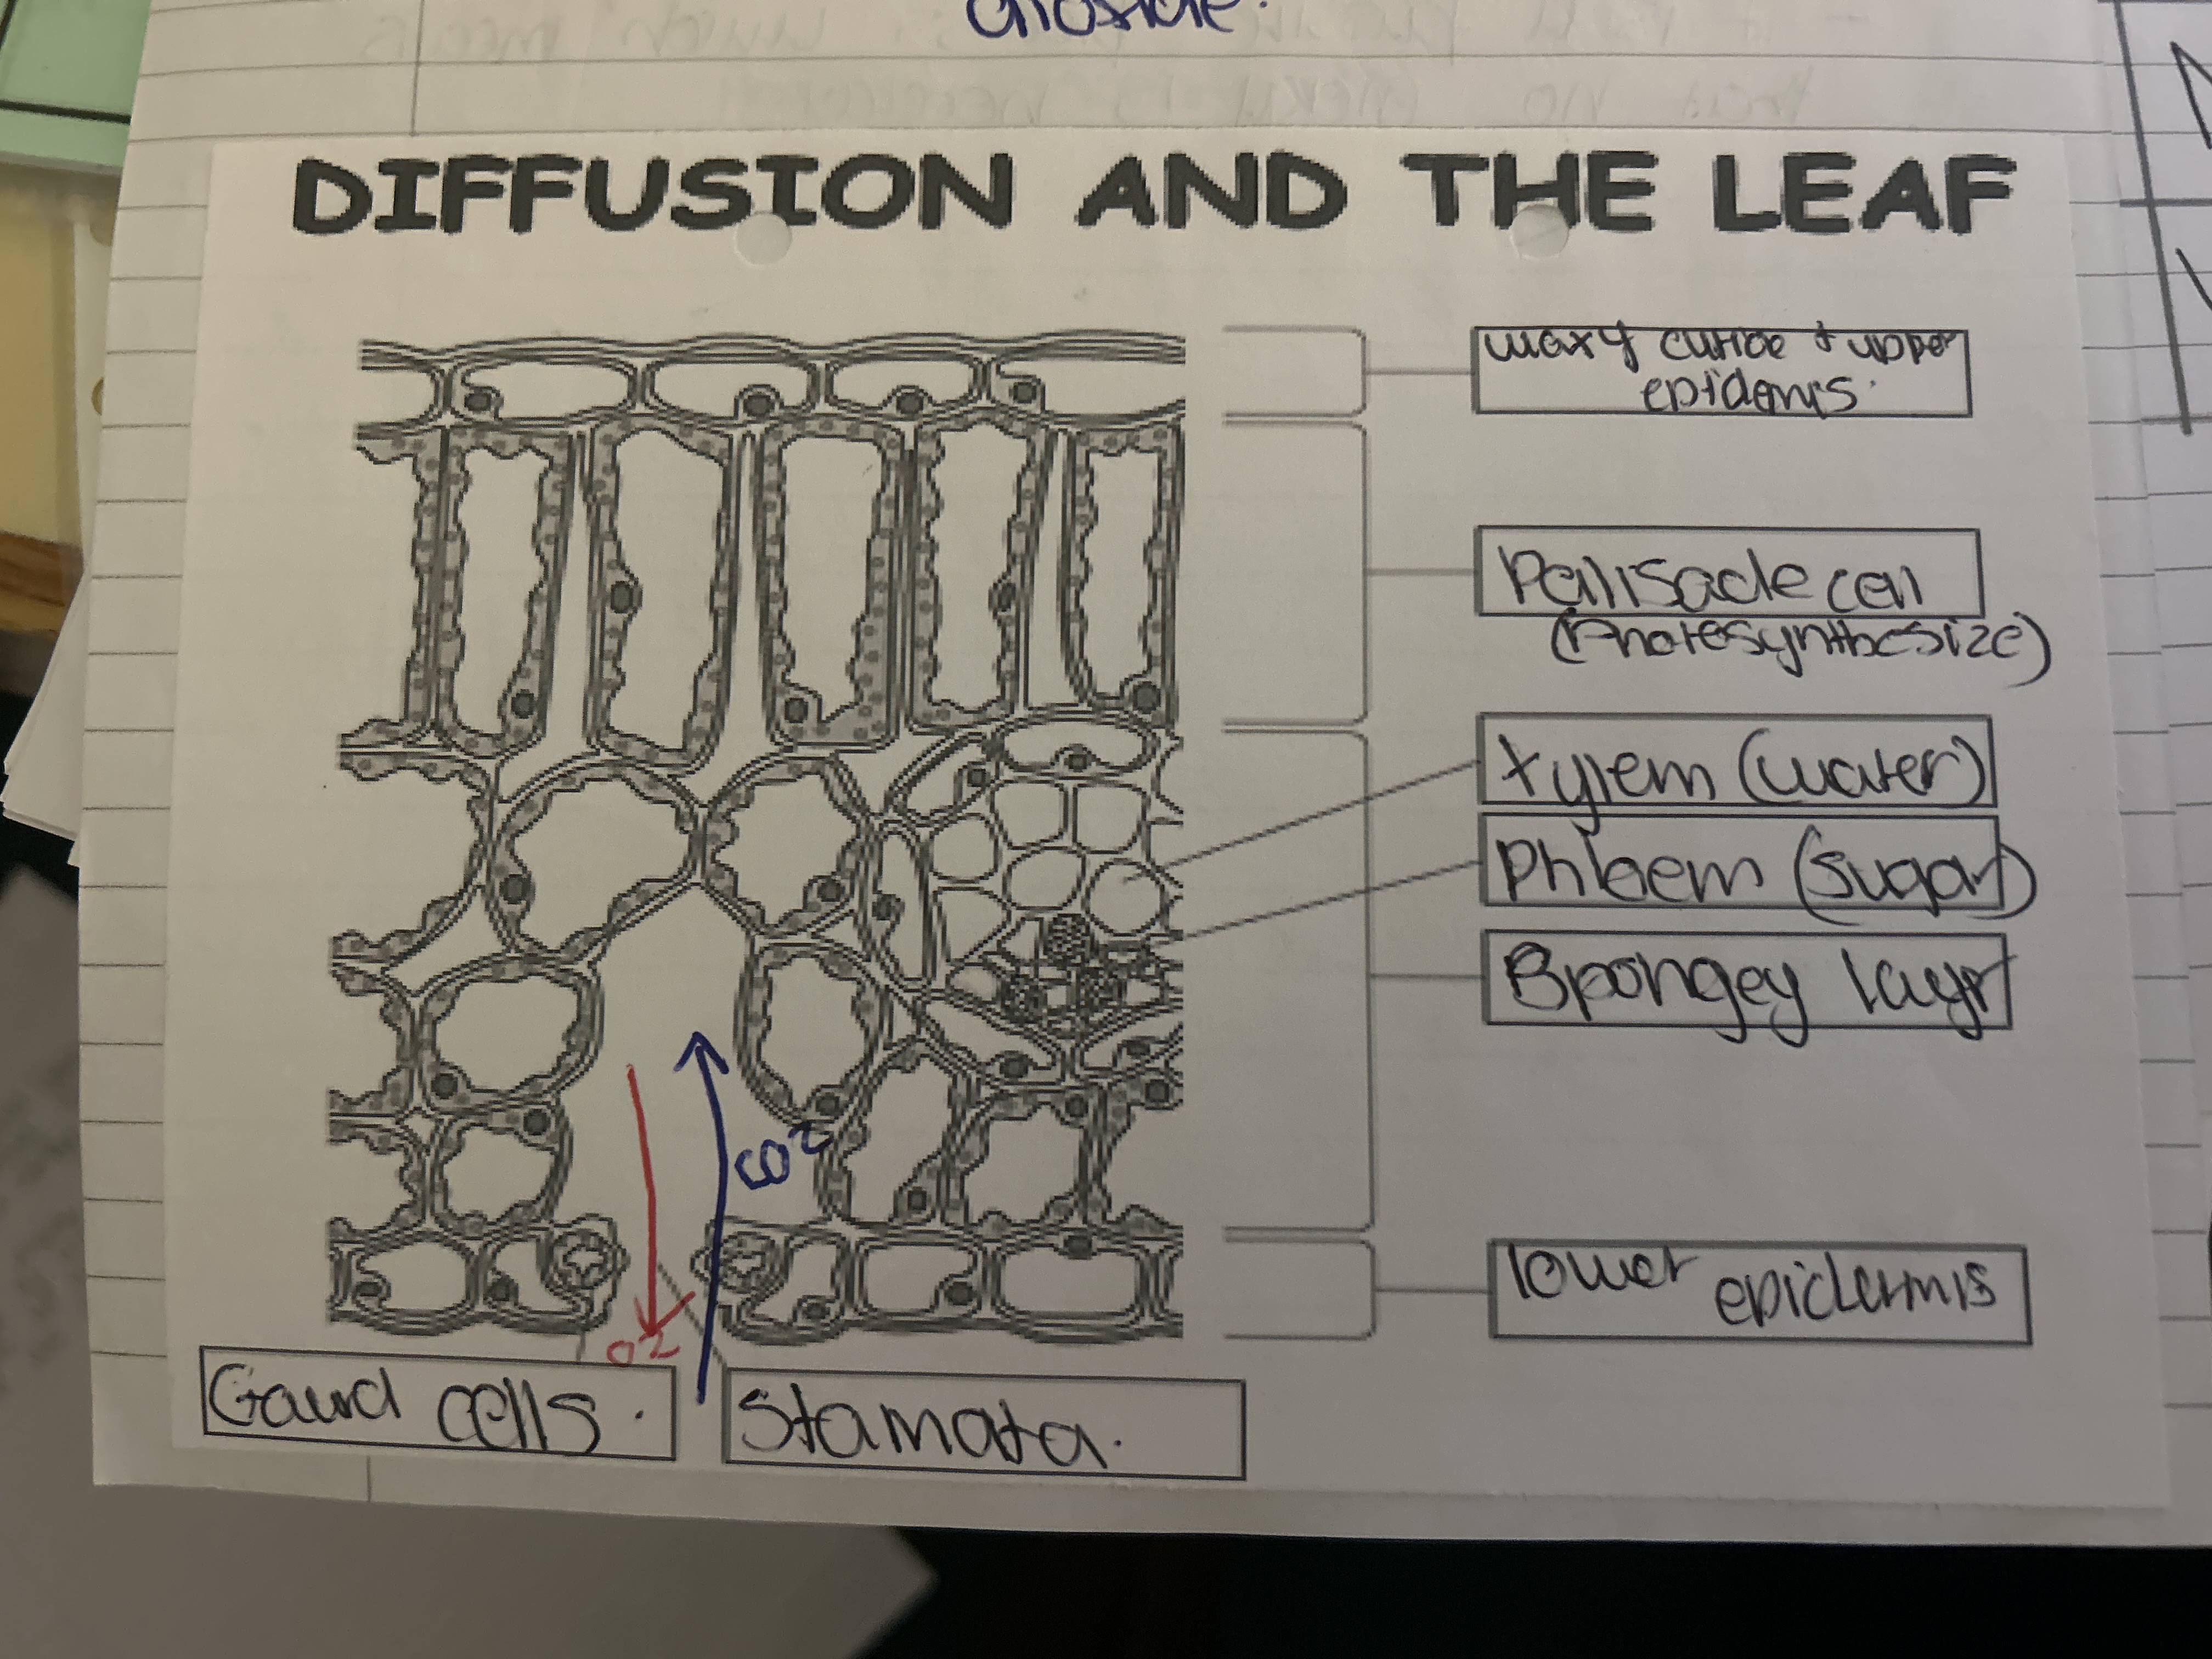 dioxide.
DIFFUSION AND THE LEAF
waxy cuticle + upper
epidemis.
Palisade cell
(Photesynthesize)
Xylem (water)
Phloem (sugar)
Spongey layr
CO2
lower epidermis
O2
Gaurd cells.
Stamata.